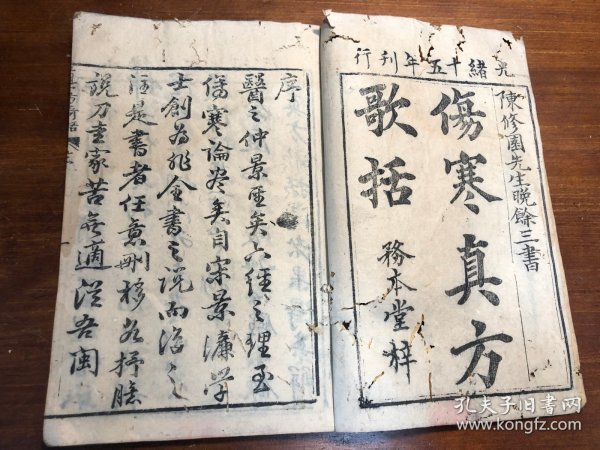 光緒十五年刊行
陳修園先生晚餘三書
傷寒真方
歌括
務本堂梓
序
醫之仲景聖矣六經之理至
傷寒論盡矣自宋景濂學
士創為非全書之說而後之
註是書者任意刪移各抒臆
說刀圭家苦無適從吾閩
孔夫子旧书网
kongfz.com